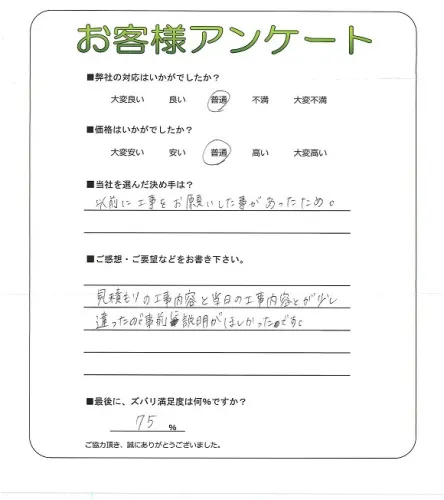 お客様アンケート
■弊社の対応はいかがでしたか?
大変良い 良い 普通 不満 大変不満
■価格はいかがでしたか?
大変安い 安い 普通 高い 大変高い
■当社を選んだ決め手は?
以前に工事をお願いした事があったため。
■ご感想・ご要望などをお書き下さい。
見積もりの工事内容と当日の工事内容とが少し
違ったので事前に説明がほしかったです。
■最後に、ズバリ満足度は何%ですか?
75 %
ご協力頂き、誠にありがとうございました。